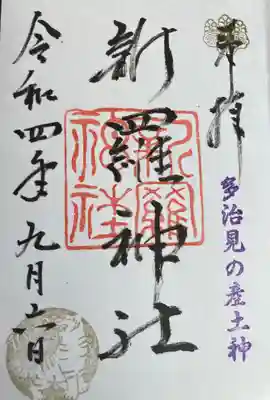 奉拝
多治見の産土神
新羅神社
新羅神社
令和四年九月二日